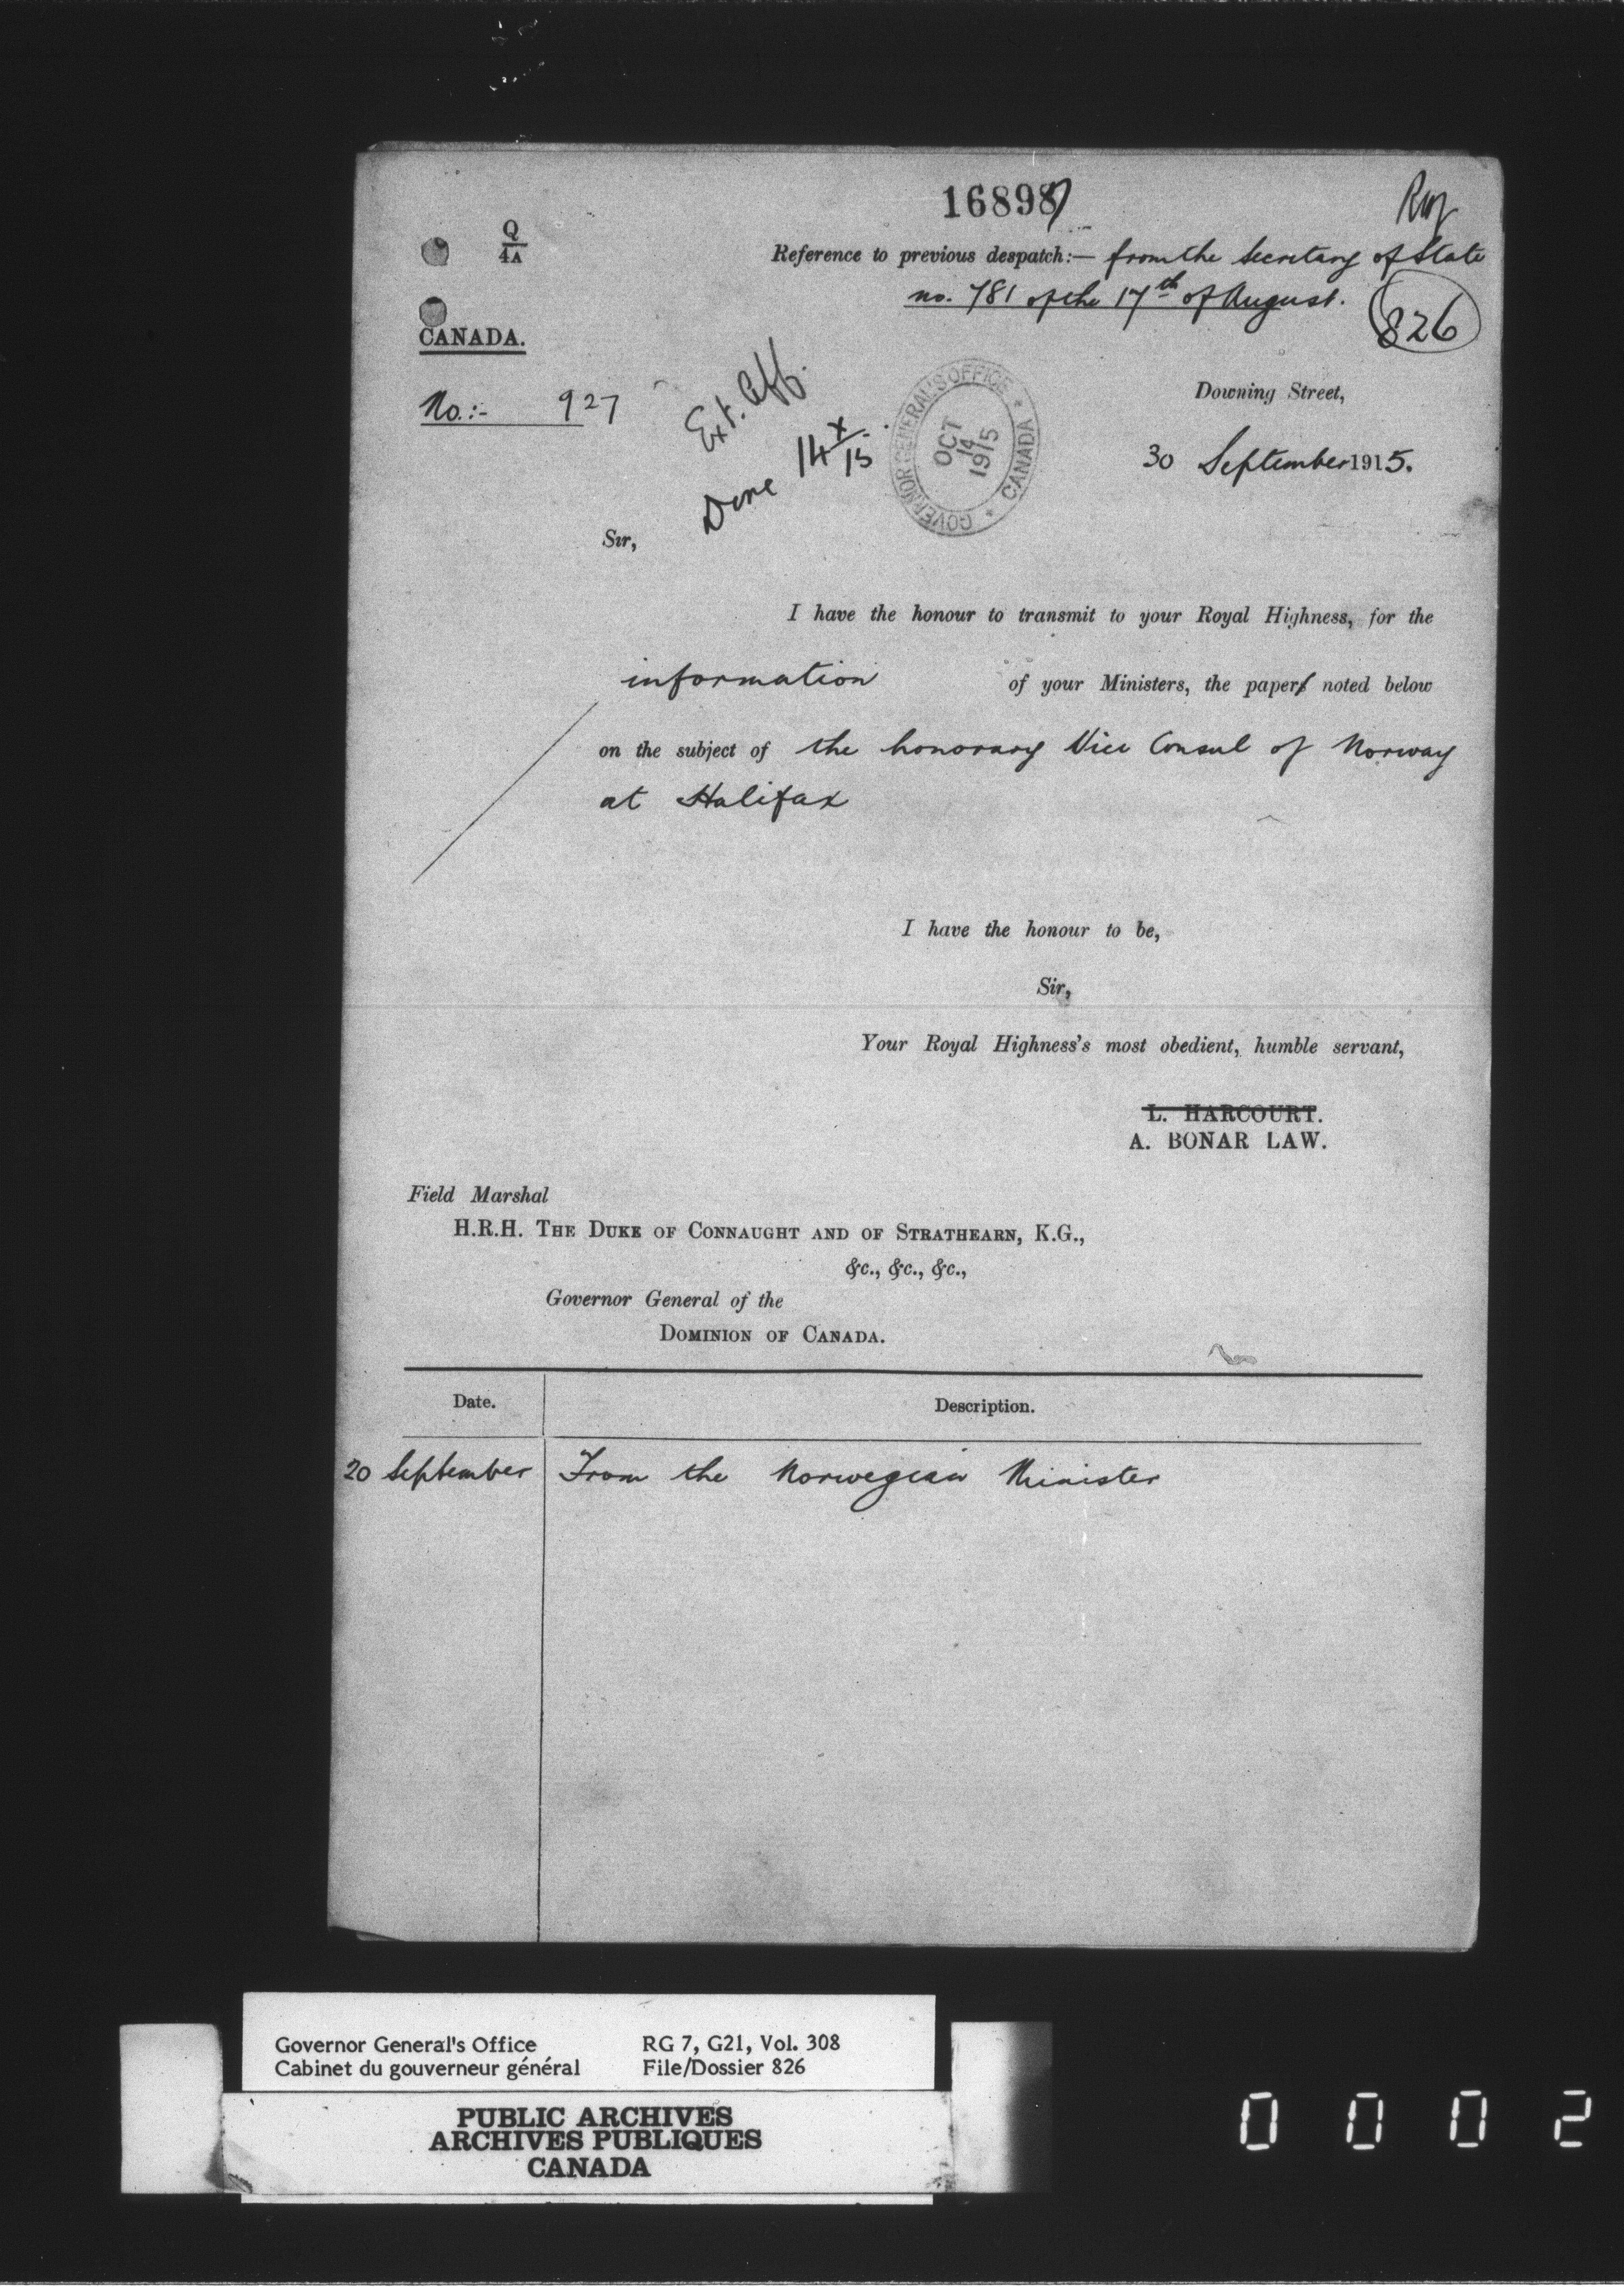 16897
Reference to previous despatch:— from the Secretary of State
no. 781 of the 17th of August.
826
Q
4A
CANADA.
No.:- 927
Ext. Aff.
Done 14 X/15.
GOVERNOR GENERAL'S OFFICE * CANADA *
OCT
14
1915
Downing Street,
30 September 1915.
Sir,
I have the honour to transmit to your Royal Highness, for the
information of your Ministers, the paper noted below
on the subject of the honorary Vice Consul of Norway
at Halifax
I have the honour to be,
Sir,
Your Royal Highness's most obedient, humble servant,
L. HARCOURT.
A. BONAR LAW.
Field Marshal
H.R.H. THE DUKE OF CONNAUGHT AND OF STRATHEARN, K.G.,
&c., &c., &c.,
Governor General of the
DOMINION OF CANADA.
Date. Description.
20 September From the Norwegian Minister
Governor General's Office RG 7, G21, Vol. 308
Cabinet du gouverneur général File/Dossier 826
PUBLIC ARCHIVES
ARCHIVES PUBLIQUES
CANADA
0002